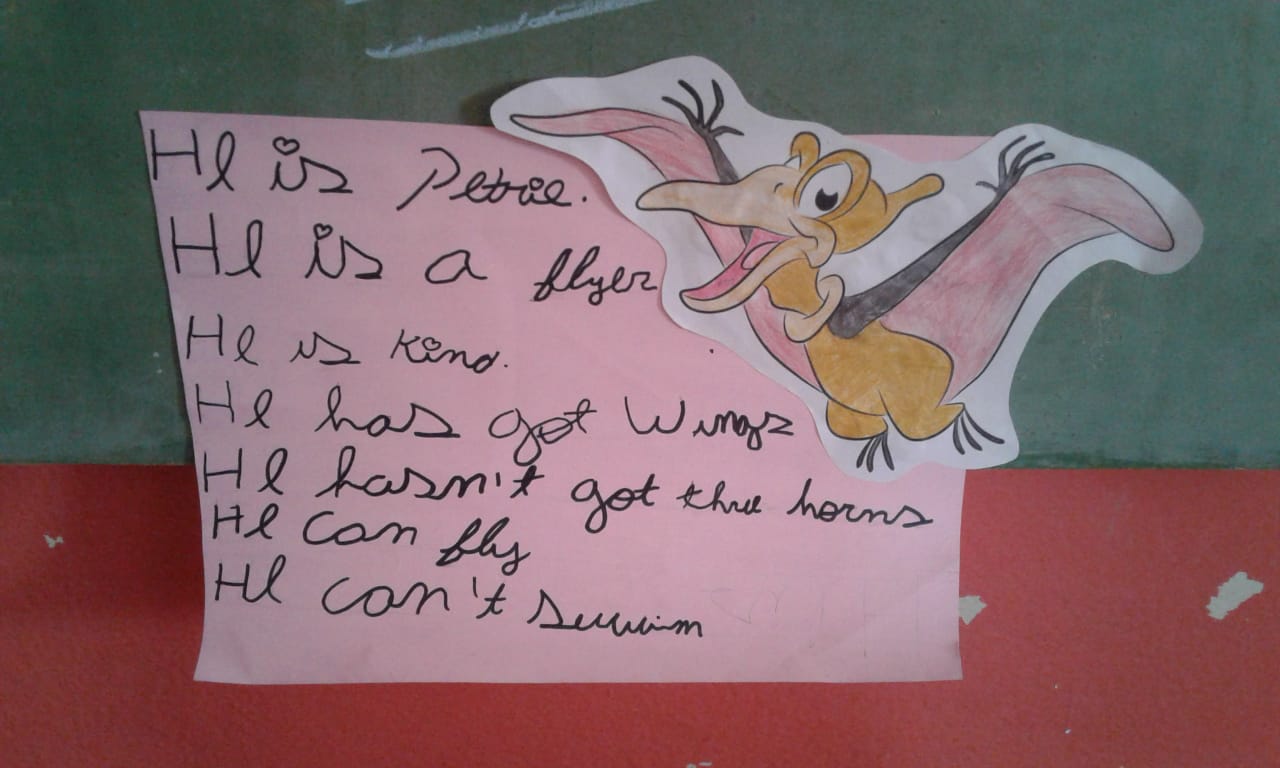 He is Petrie.
He is a flyer
He is kind.
He has got wings
He hasn't got three horns
He can fly
He can't swim